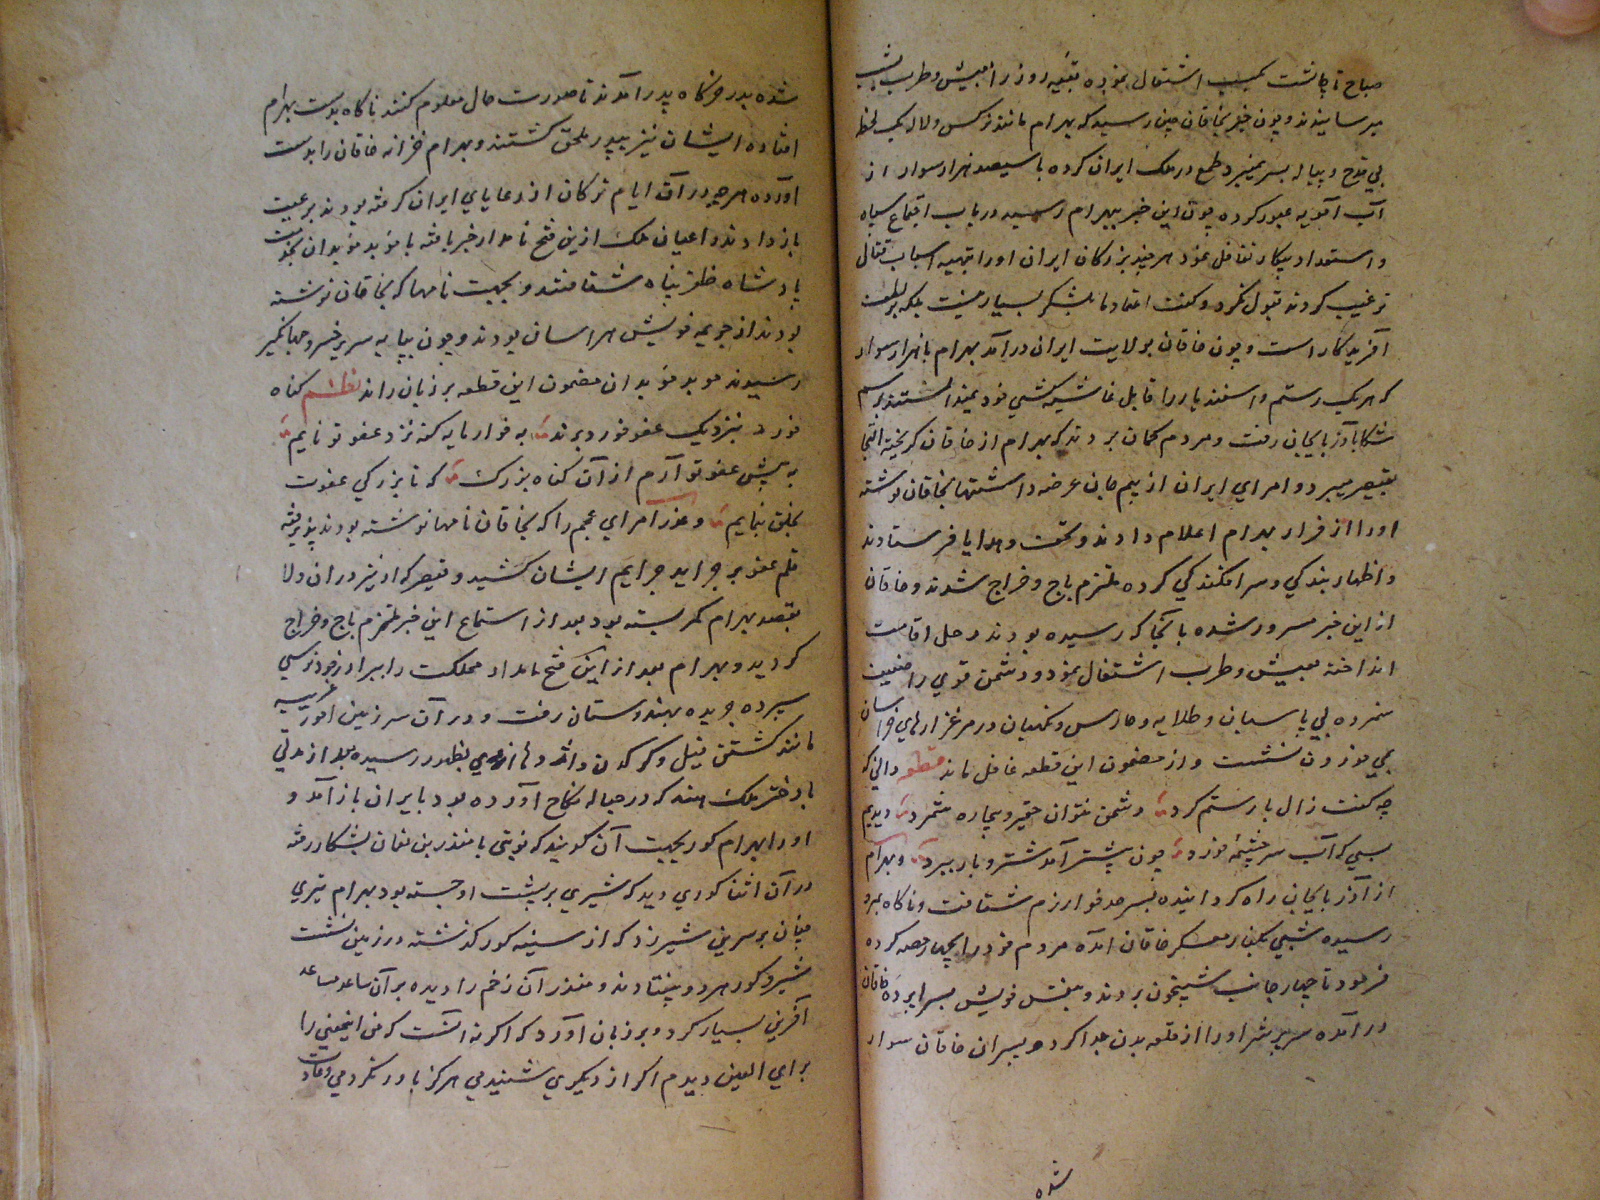 صباح تا چاشت بکسب اشتغال نموده بقیه روز را بعیش و طرب بشب
میرسانیدند و چون خبر بخاقان چین رسید که بهرام مانند نرکس و لاله یک لحظه
بی قدح و پیاله بسر نمیبرد طمع در ملک ایران کرده با سیصد هزار سوار از
آب آمویه عبور کرده چون این خبر ببهرام رسید در باب اجتماع سپاه
و استعداد پیکار تغافل نمود هرچند بزرکان ایران او را بتهیه اسباب قتال
ترغیب کردند قبول نکرد و کفت اعتماد ما بلشکر بسیار نیست بلکه بر لطف
آفریدکار است و چون خاقان بولایت ایران درآمد بهرام با هزار سوار
که هر یک رستم و اسفندیار را قابل غاشیه کشی خود نمیدانستند برسم
شکار بآذربایجان رفت و مردم کمان بردند که بهرام از خاقان کریخته التجا
بقیصر میبرد و امرای ایران از بیم جان عرضه داشتها بخاقان نوشته
او را از فرار بهرام اعلام دادند و تحف و هدایا فرستادند
و اظهار بندکی و سرافکندکی کرده ملتزم باج و خراج شدند و خاقان
از این خبر مسرور شده بآنجا که رسیده بودند رحل اقامت
انداخته بعیش و طرب اشتغال نمود و دشمن قوی را ضعیف
شمرده بی پاسبان و طلایه و حارس و نکهبان در مرغزارهای خراسان
بمی خوردن نشست و از مضمون این قطعه غافل ماند قطعه دانی که
چه کفت زال با رستم کرد دشمن نتوان حقیر و بیچاره شمرد دیدیم
بسی که آب سرچشمه خورد چون بیشتر آمد شتر و بار ببرد و بهرام
از آذربایجان راه کردانیده بسرحد خوارزم شتافت و ناکاه بمرو
رسیده شبی بکنار معسکر خاقان آمده مردم خود را بچهار حصه کرده
فرمود تا چهار جانب شبیخون بردند و بنفس خویش بسراپرده خاقان
درآمده سر پر شر او را از قلعه بدن جدا کرد و پسران خاقان سوار
شده
شده بدر خرکاه پدر آمدند تا صورت حال معلوم کنند ناکاه بدست بهرام
افتاده ایشان نیز بپدر ملحق کشتند و بهرام خزانه خاقان را بدست
آورده هرچه در آن ایام ترکان از رعایای ایران کرفته بودند برعیت
باز دادند و اعیان ملک ازین فتح نامدار خبر یافته با موبد موبدان بخدمت
پادشاه ظفرپناه شتافتند و بجهت نامها که بخاقان نوشته
بودند از جریمه خویش هراسان بودند و چون بپایه سریر خسرو جهانکیر
رسیدند موبد موبدان مضمون این قطعه بر زبان راند نظم کناه
خورد بنزدیک عفو خورد برند به خوار مایه کنه نزد عفو تو نایم
به پیش عفو تو آرم از آن کناه بزرک که تا بزرکی عفوت
بخلق بنمایم و عذر امرای عجم را که بخاقان نامها نوشته بودند پذیرفته
قلم عفو بر جراید جرایم ایشان کشید و قیصر که او نیز در آن ولا
بقصد بهرام کمر بسته بود بعد از استماع این خبر ملتزم باج و خراج
کردید و بهرام بعد از این فتح نامدار مملکت را ببرادر خود نرسی
سپرده جریده بهندوستان رفت و در آن سرزمین امور غریبه
مانند کشتن فیل و کرکدن و اژدهای بظهور رسیده بعد از مدتی
با دختر ملک هند که در حباله نکاح آورده بود بایران باز آمد و
او را بهرام کور بجهت آن کویند که نوبتی با منذر بن نعمان بشکار رفته
در آن اثنا کوری دید که شیری بر پشت او جسته بود بهرام تیری
چنان بر سرین شیر زد که از سینه کور کذشته در زمین نشست
شیر و کور هر دو بیفتادند و منذر آن زخم را دیده بر آن ساعد مساعد
آفرین بسیار کرد و بر زبان آورد که اکر نه آنست که من اینمعنی را
برای العین دیدم اکر از دیکری شنیدمی هرکز باور نکردمی وفات